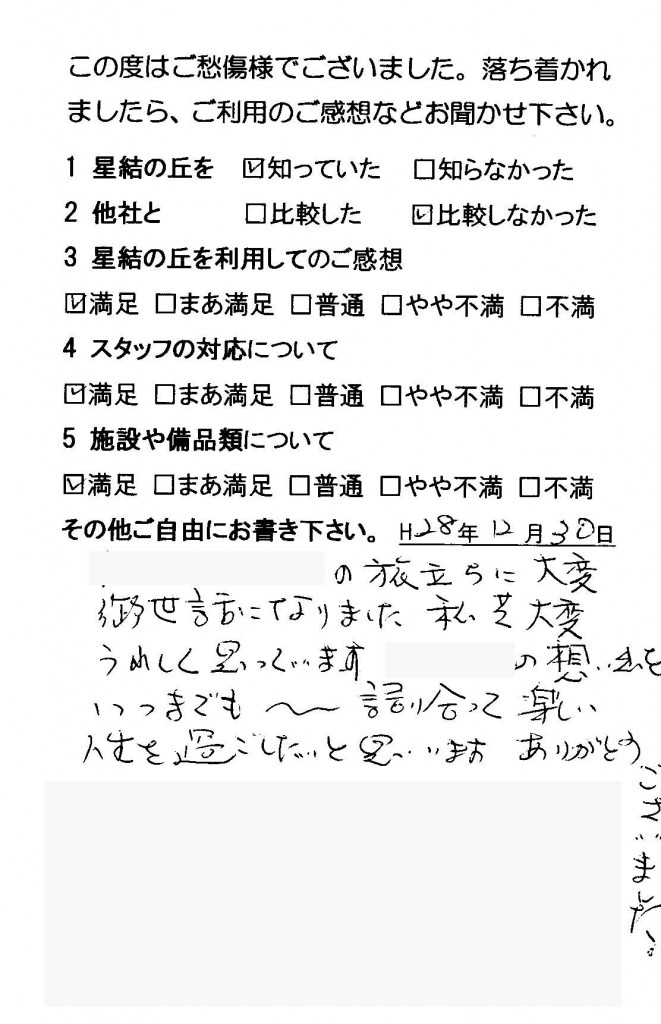 この度はご愁傷様でございました。落ち着かれ
ましたら、ご利用のご感想などお聞かせ下さい。
1 星結の丘を ☑知っていた □知らなかった
2 他社と □比較した ☑比較しなかった
3 星結の丘を利用してのご感想
☑満足 □まあ満足 □普通 □やや不満 □不満
4 スタッフの対応について
☑満足 □まあ満足 □普通 □やや不満 □不満
5 施設や備品類について
☑満足 □まあ満足 □普通 □やや不満 □不満
その他ご自由にお書き下さい。 H28年12月30日
の旅立ちに大変
御世話になりました 私共大変
うれしく思っています の想い出を
いつまでも〜〜語り合って楽しい
人生を過ごしたいと思います ありがとう
ございました!